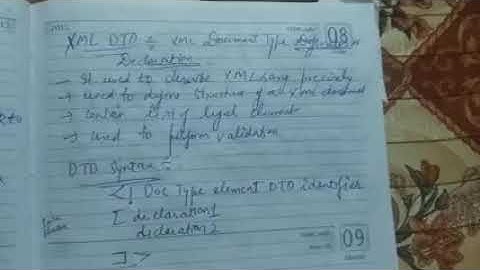 XML DTD = XML Document Type
Declaration
- It used to describe XML lang precisely
→ used to define Structure of an XML document
→ Contain list of legal element
→ Used to perform validation
DTD Syntax :-
<! Doc Type element DTD identifier
[ declaration1
declaration 2
]>
08
09